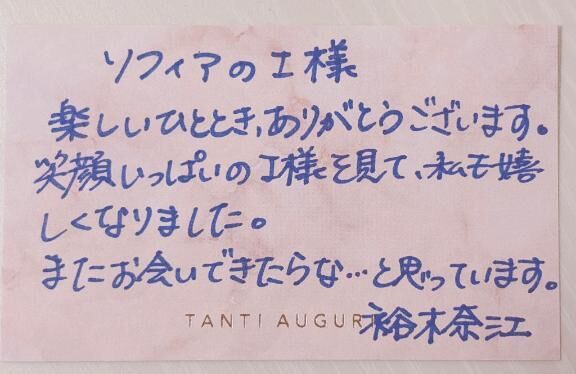 ソフィアのI様
楽しいひととき、ありがとうございます。
笑顔いっぱいのI様を見て、私も嬉
しくなりました。
またお会いできたらな…と思っています。
TANTI AUGURI
裕木奈江